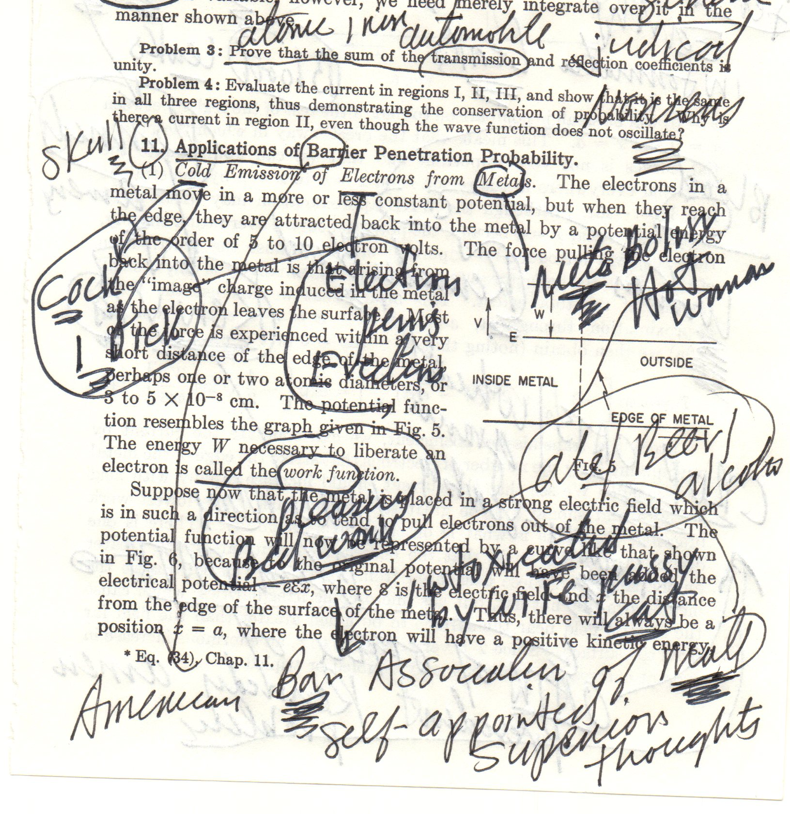 however, we need merely, integrate over it in the
manner shown above.
atomic iron automobile
judicial
Problem 3: Prove that the sum of the transmission and reflection coefficients is
unity.
Problem 4: Evaluate the current in regions I, II, III, and show that it is the same
in all three regions, thus demonstrating the conservation of probability. Why is
there a current in region II, even though the wave function does not oscillate?
Skull
11. Applications of Barrier Penetration Probability.
(1) Cold Emission of Electrons from Metals. The electrons in a
metal move in a more or less constant potential, but when they reach
the edge, they are attracted back into the metal by a potential energy
of the order of 5 to 10 electron volts. The force pulling the electron
back into the metal is that arising from
the "image" charge induced in the metal
as the electron leaves the surface. Most
of the force is experienced within a very
short distance of the edge of the metal
perhaps one or two atomic diameters, or
3 to 5 × 10⁻⁸ cm. The potential func-
tion resembles the graph given in Fig. 5.
The energy W necessary to liberate an
electron is called the work function.
Cock
Dick
Electron
Penis
Metabolism
Hot
Woman
V
W
E
INSIDE METAL
OUTSIDE
EDGE OF METAL
FIG. 5
ale/Beer/
alcohol
Suppose now that the metal is placed in a strong electric field which
is in such a direction as to tend to pull electrons out of the metal. The
potential function will now be represented by a curve like that shown
in Fig. 6, because to the original potential will have been added the
electrical potential −eℰx, where ℰ is the electric field and x the distance
from the edge of the surface of the metal. Thus, there will always be a
position x = a, where the electron will have a positive kinetic energy,
pleasure
intoxicated
by wife pussy
Cat
* Eq. (34), Chap. 11.
American Bar Association of Malt
self-appointed
Superiors
thoughts